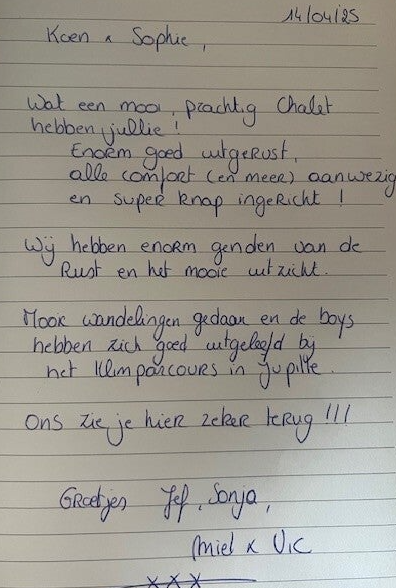 14/04/25
Koen & Sophie,
Wat een mooi, prachtig Chalet
hebben jullie !
Enorm goed uitgerust,
alle comfort (en meer) aanwezig
en super knap ingericht !
Wij hebben enorm genden van de
Rust en het mooie uitzicht.
Mooie wandelingen gedaan en de boys
hebben zich goed uitgeleefd bij
het klimparcours in Jupille.
Ons zie je hier zeker terug !!!
Groetjes Jef, Sonja,
Miel x Vic
xxx